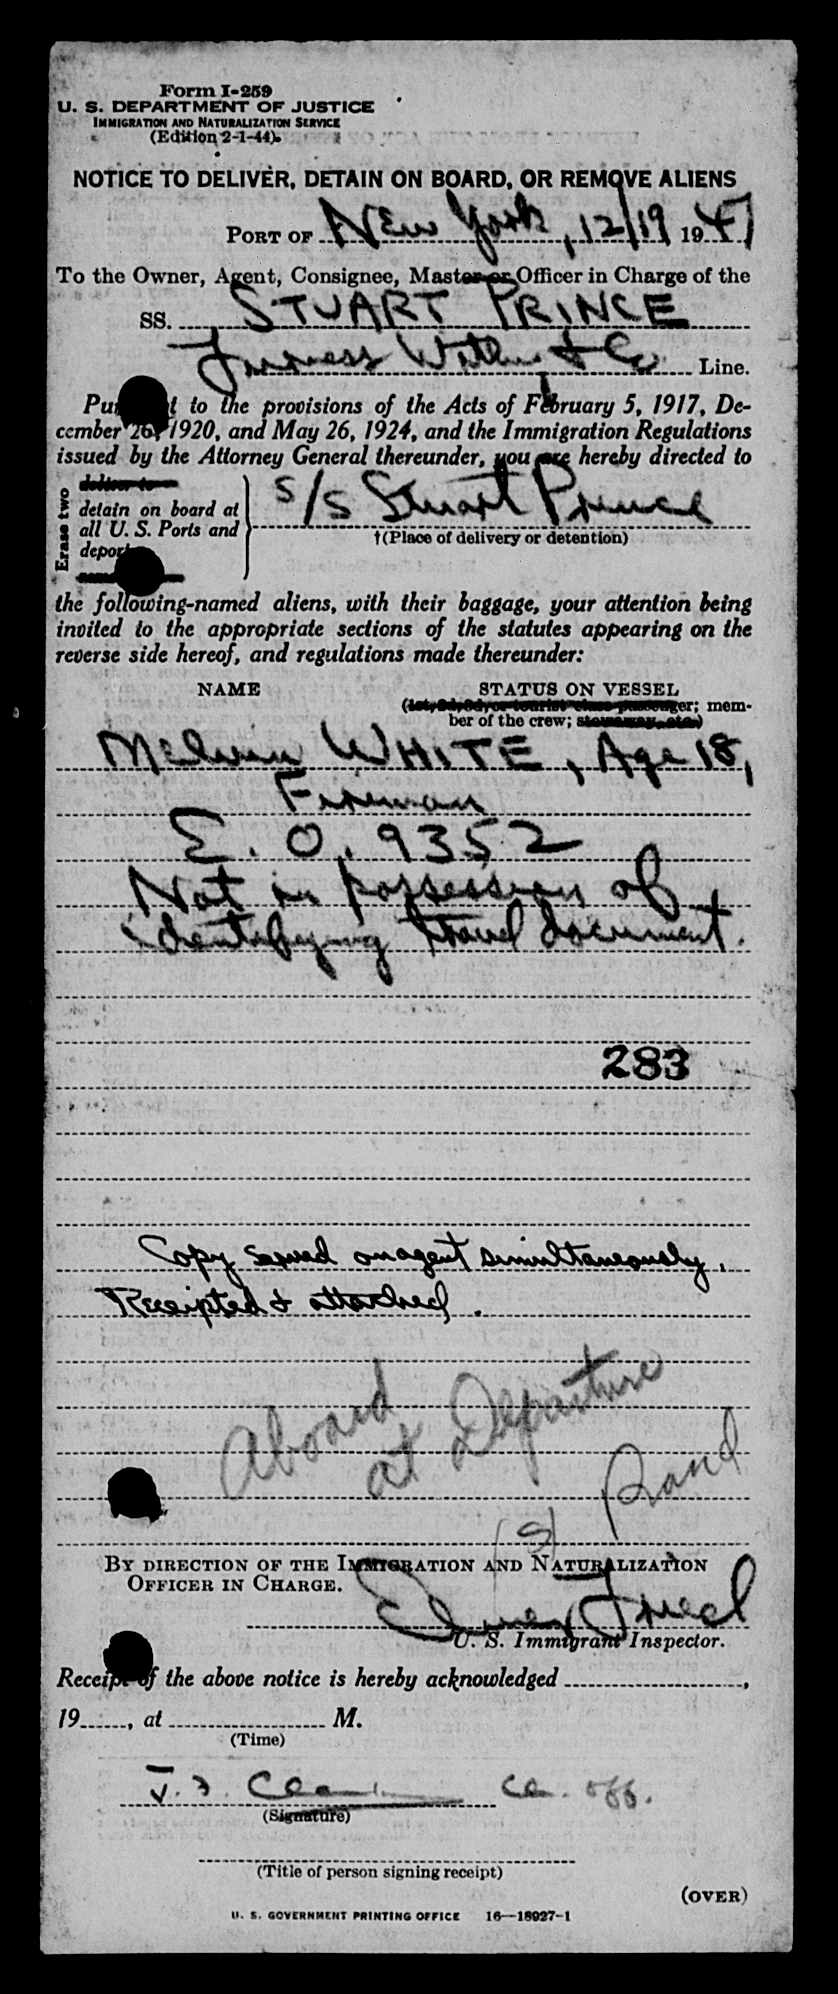 Form I-259
U. S. DEPARTMENT OF JUSTICE
IMMIGRATION AND NATURALIZATION SERVICE
(Edition 2-1-44)
NOTICE TO DELIVER, DETAIN ON BOARD, OR REMOVE ALIENS
PORT OF New York, 12/19 1947
To the Owner, Agent, Consignee, Master or Officer in Charge of the
SS. STUART PRINCE
Furness Withy & Co. Line.
Pursuant to the provisions of the Acts of February 5, 1917, De-
cember 26, 1920, and May 26, 1924, and the Immigration Regulations
issued by the Attorney General thereunder, you are hereby directed to
Erase two
deliver to
detain on board at
all U. S. Ports and
deport
S/S Stuart Prince
†(Place of delivery or detention)
the following-named aliens, with their baggage, your attention being
invited to the appropriate sections of the statutes appearing on the
reverse side hereof, and regulations made thereunder:
NAME STATUS ON VESSEL
(1st, 2d, 3d, or tourist class passenger; mem-
ber of the crew; stowaway, etc.)
Melvin WHITE, Age 18,
Fireman
E.O. 9352
Not in possession of
identifying travel document.
283
Copy served on agent simultaneously.
Receipted & attached.
Aboard
at Departure
(s) Rand
BY DIRECTION OF THE IMMIGRATION AND NATURALIZATION
OFFICER IN CHARGE.
Elmer Fried
U. S. Immigrant Inspector.
Receipt of the above notice is hereby acknowledged ,
19 , at M.
(Time)
Ch. off.
(Signature)
(Title of person signing receipt)
(OVER)
U. S. GOVERNMENT PRINTING OFFICE 16—18927-1